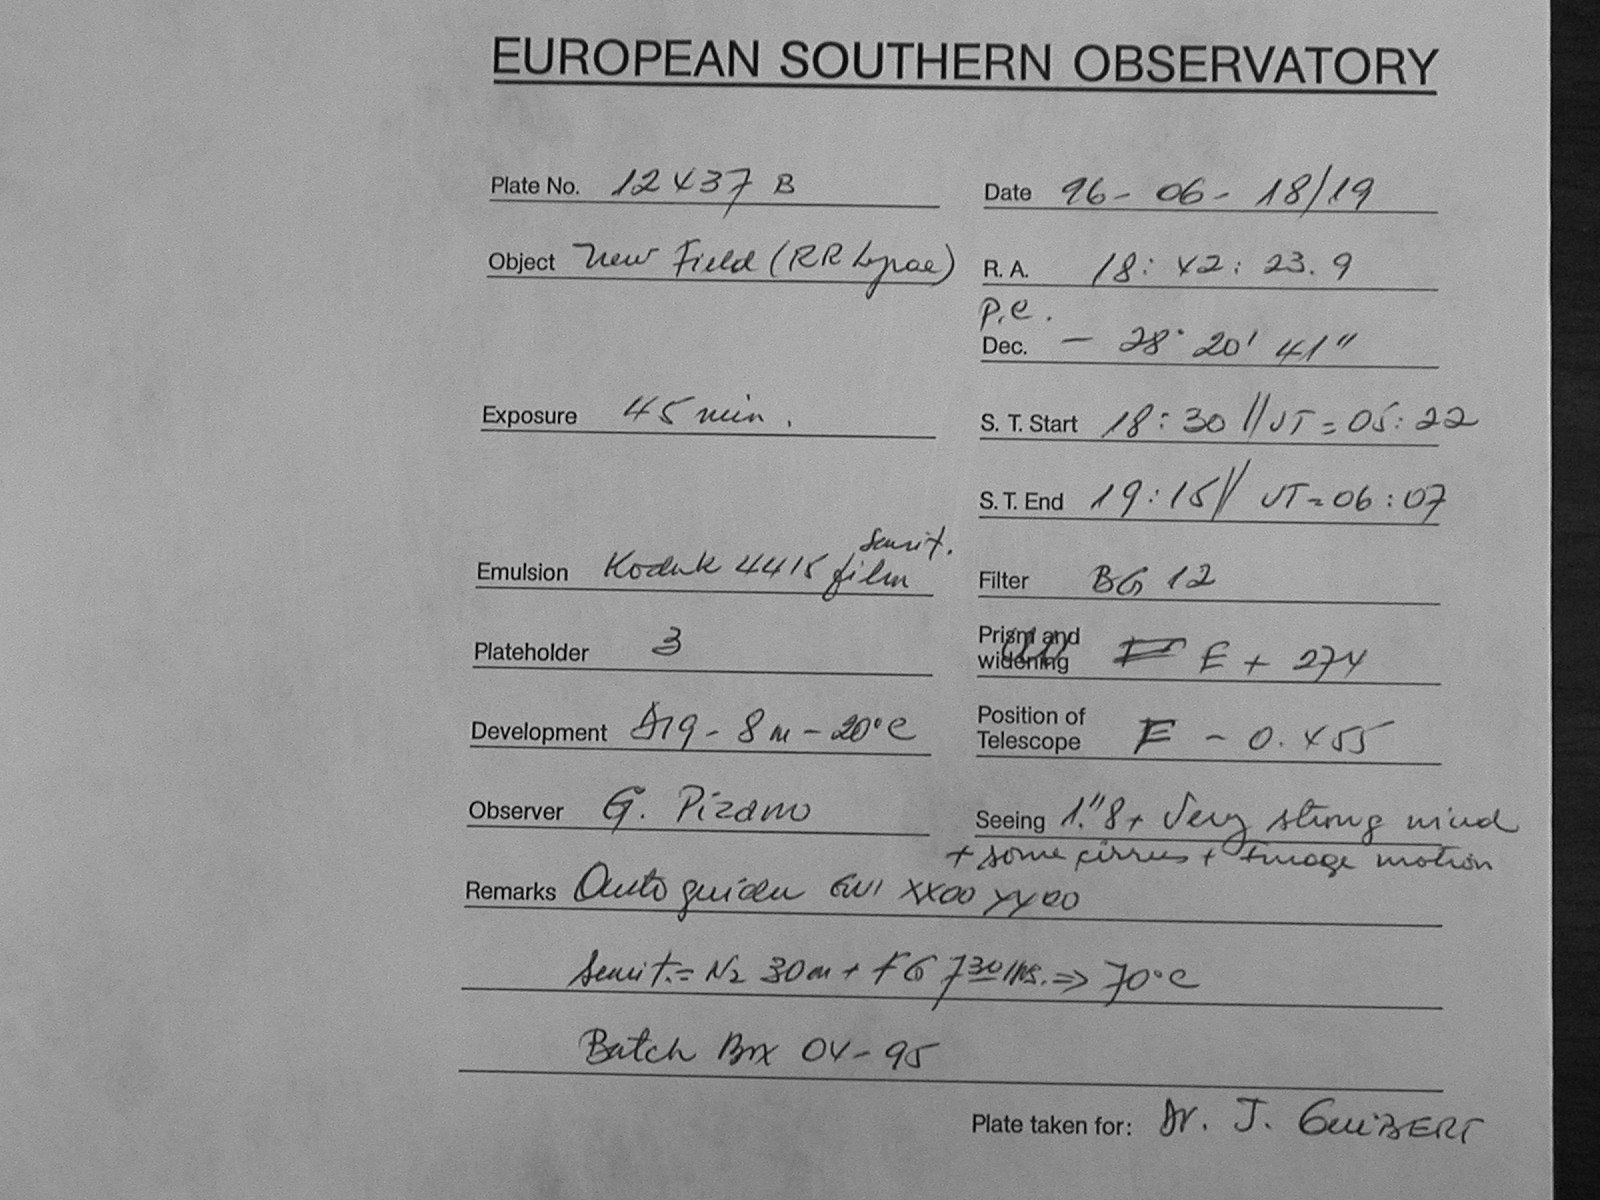 EUROPEAN SOUTHERN OBSERVATORY
Plate No. 12437 B
Date 96-06-18/19
Object New Field (RR Lyrae)
R. A. 18: 42: 23.9
P.e.
Dec. - 28° 20' 41"
Exposure 45 min.
S. T. Start 18:30 // UT = 05:22
S. T. End 19:15 // UT = 06:07
sensit.
Emulsion Kodak 4415 film
Filter BG 12
Plateholder 3
Prism and
widening E + 274
Development D19 - 8m - 20°C
Position of
Telescope E - 0.455
Observer G. Pizarro
Seeing 1."8 + Very strong wind
+ some cirrus + Image motion
Remarks Autoguider GW1 XX00 YY00
Sensit. = N2 30m + FG 7 30 hrs. => 70°C
Batch Box 04-95
Plate taken for: Dr. J. GUIBERT